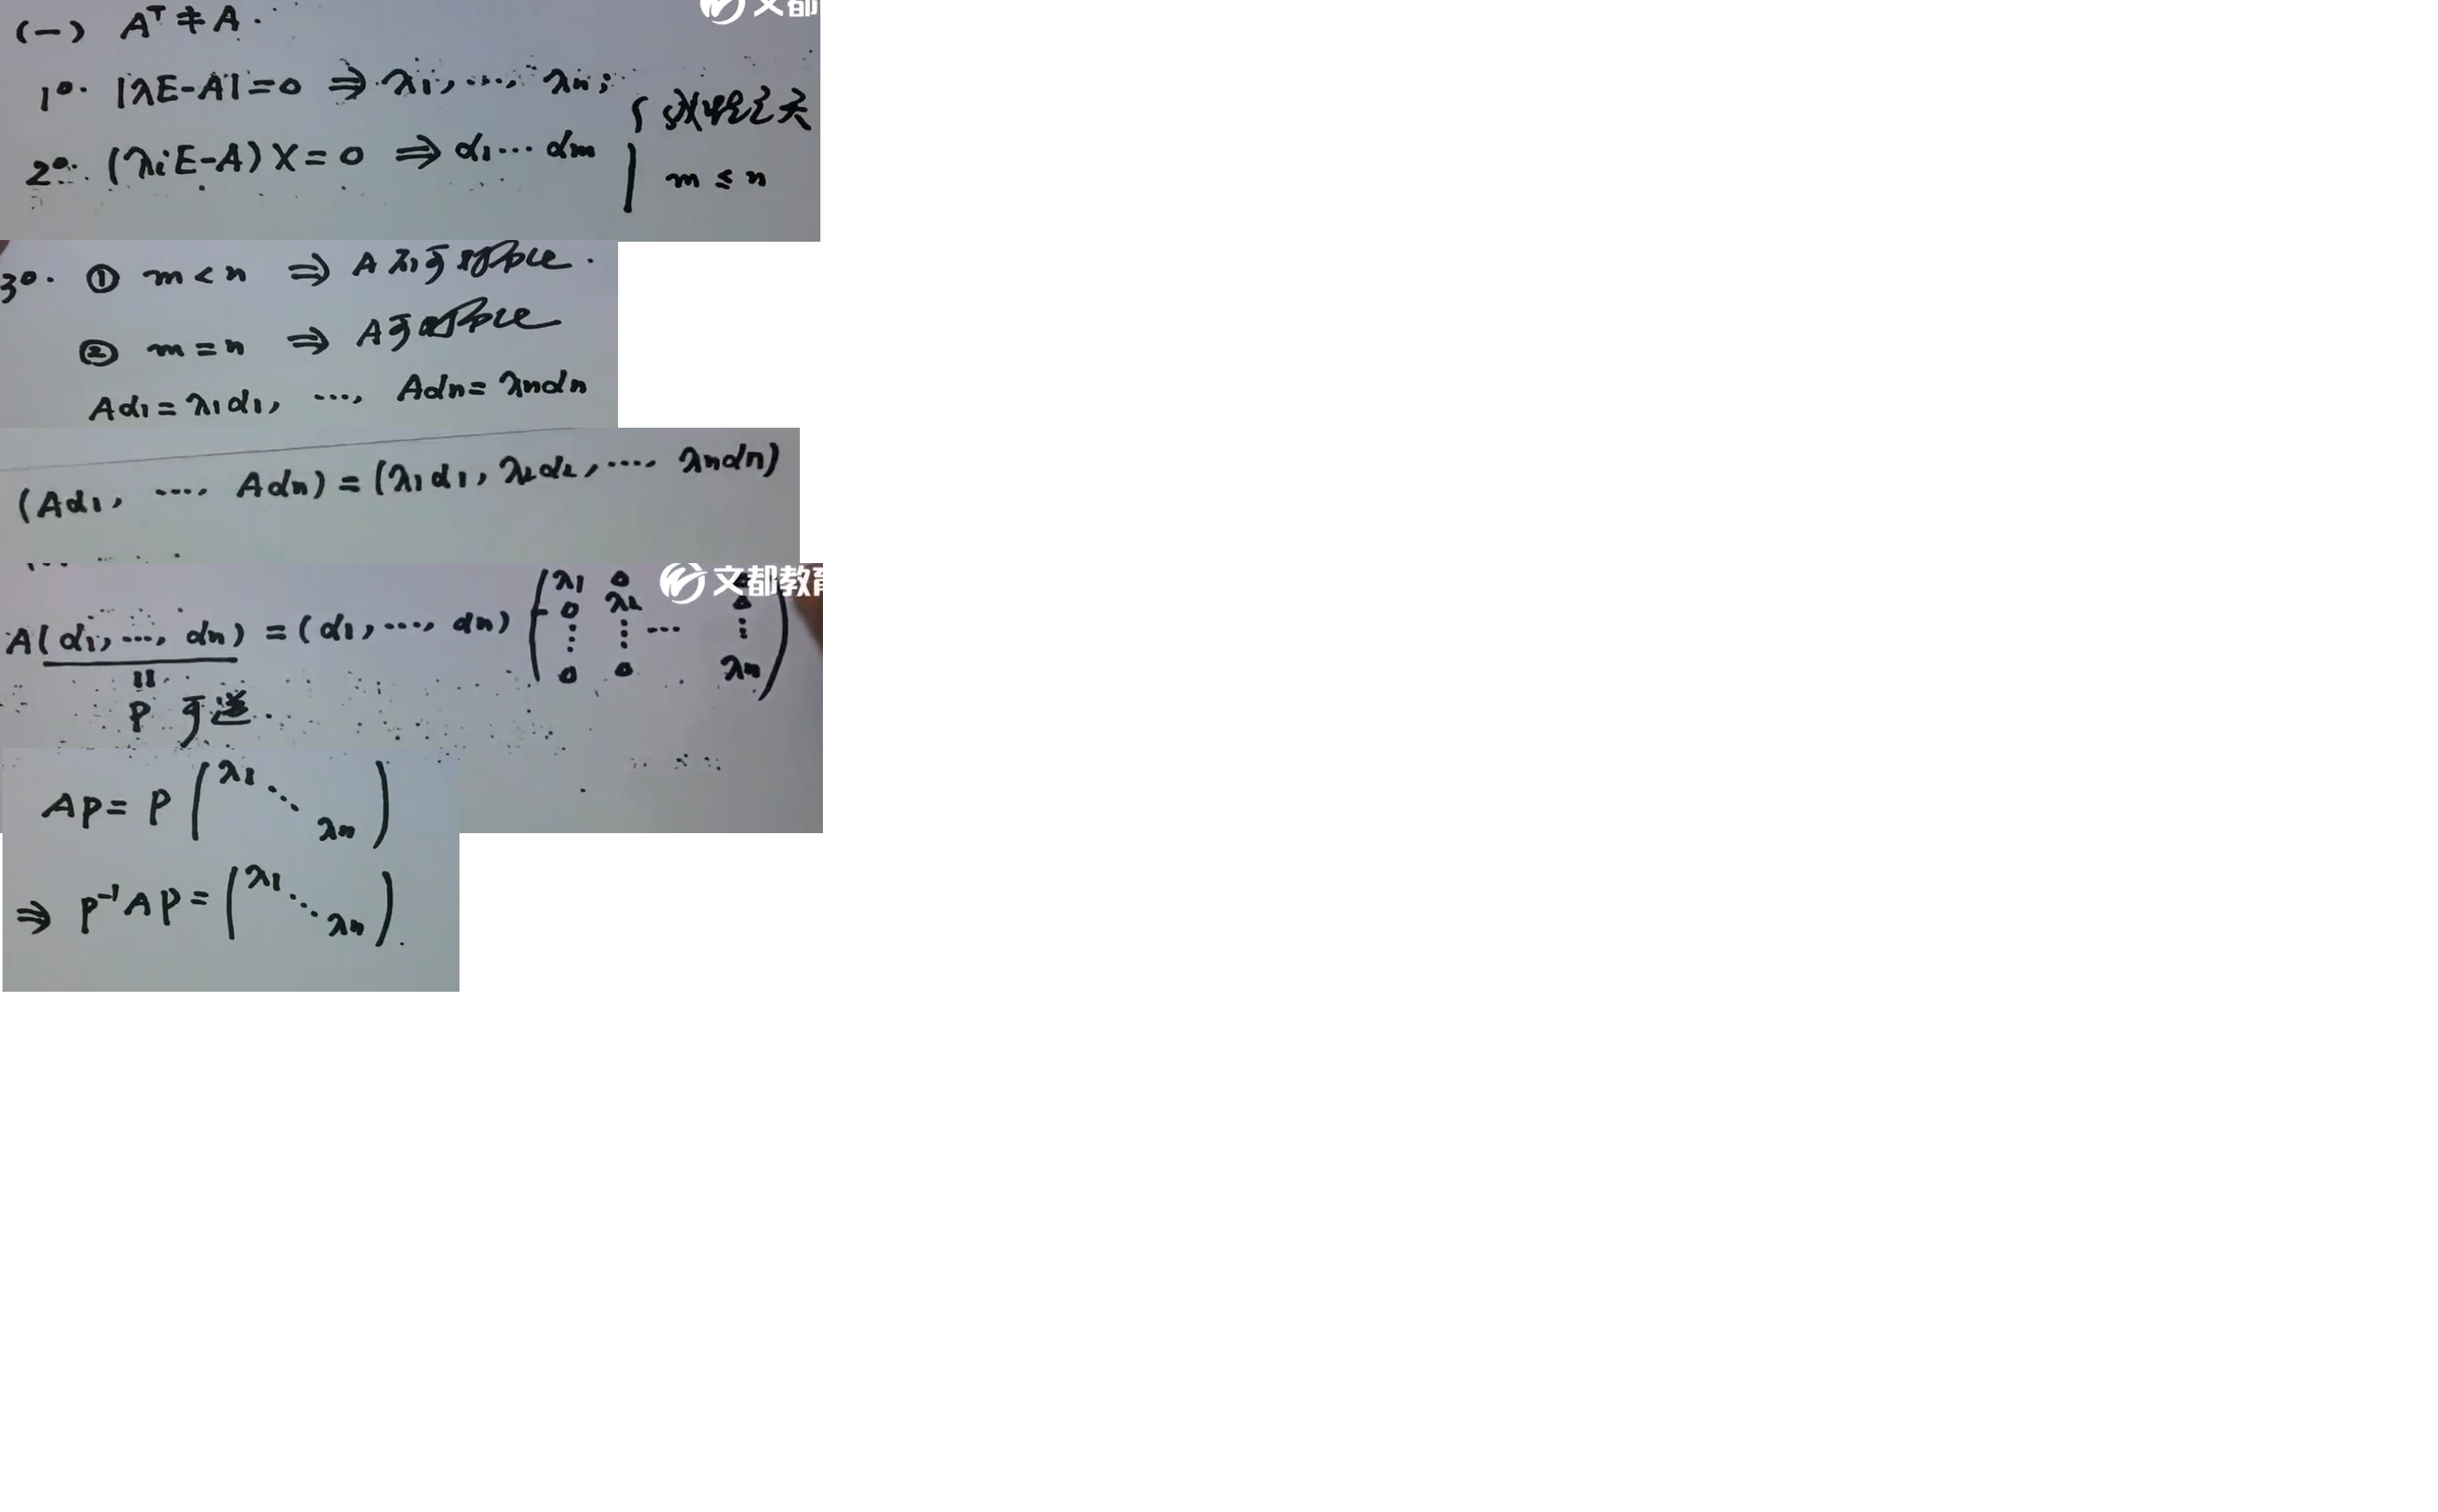 文都
(一) Aᵀ ≠ A.
1°. |λE-A|=0 ⇒ λ1, ..., λn;
2°. (λiE-A)X=0 ⇒ α1 ... αm { 线性无关
m ≤ n
3°. ① m < n ⇒ A不可对角化.
② m = n ⇒ A可对角化
Aα1=λ1α1, ..., Aαn=λnαn
(Aα1, ..., Aαn) = (λ1α1, λ2α2, ..., λnαn)
文都教育
A(α1, ..., αn) = (α1, ..., αn) (λ1 0 0
0 λ2 0
⋮ ⋮ ... ⋮
0 0 λn)
=
P 可逆.
AP = P (λ1 ⋱ λn)
⇒ P⁻¹AP = (λ1 ⋱ λn).